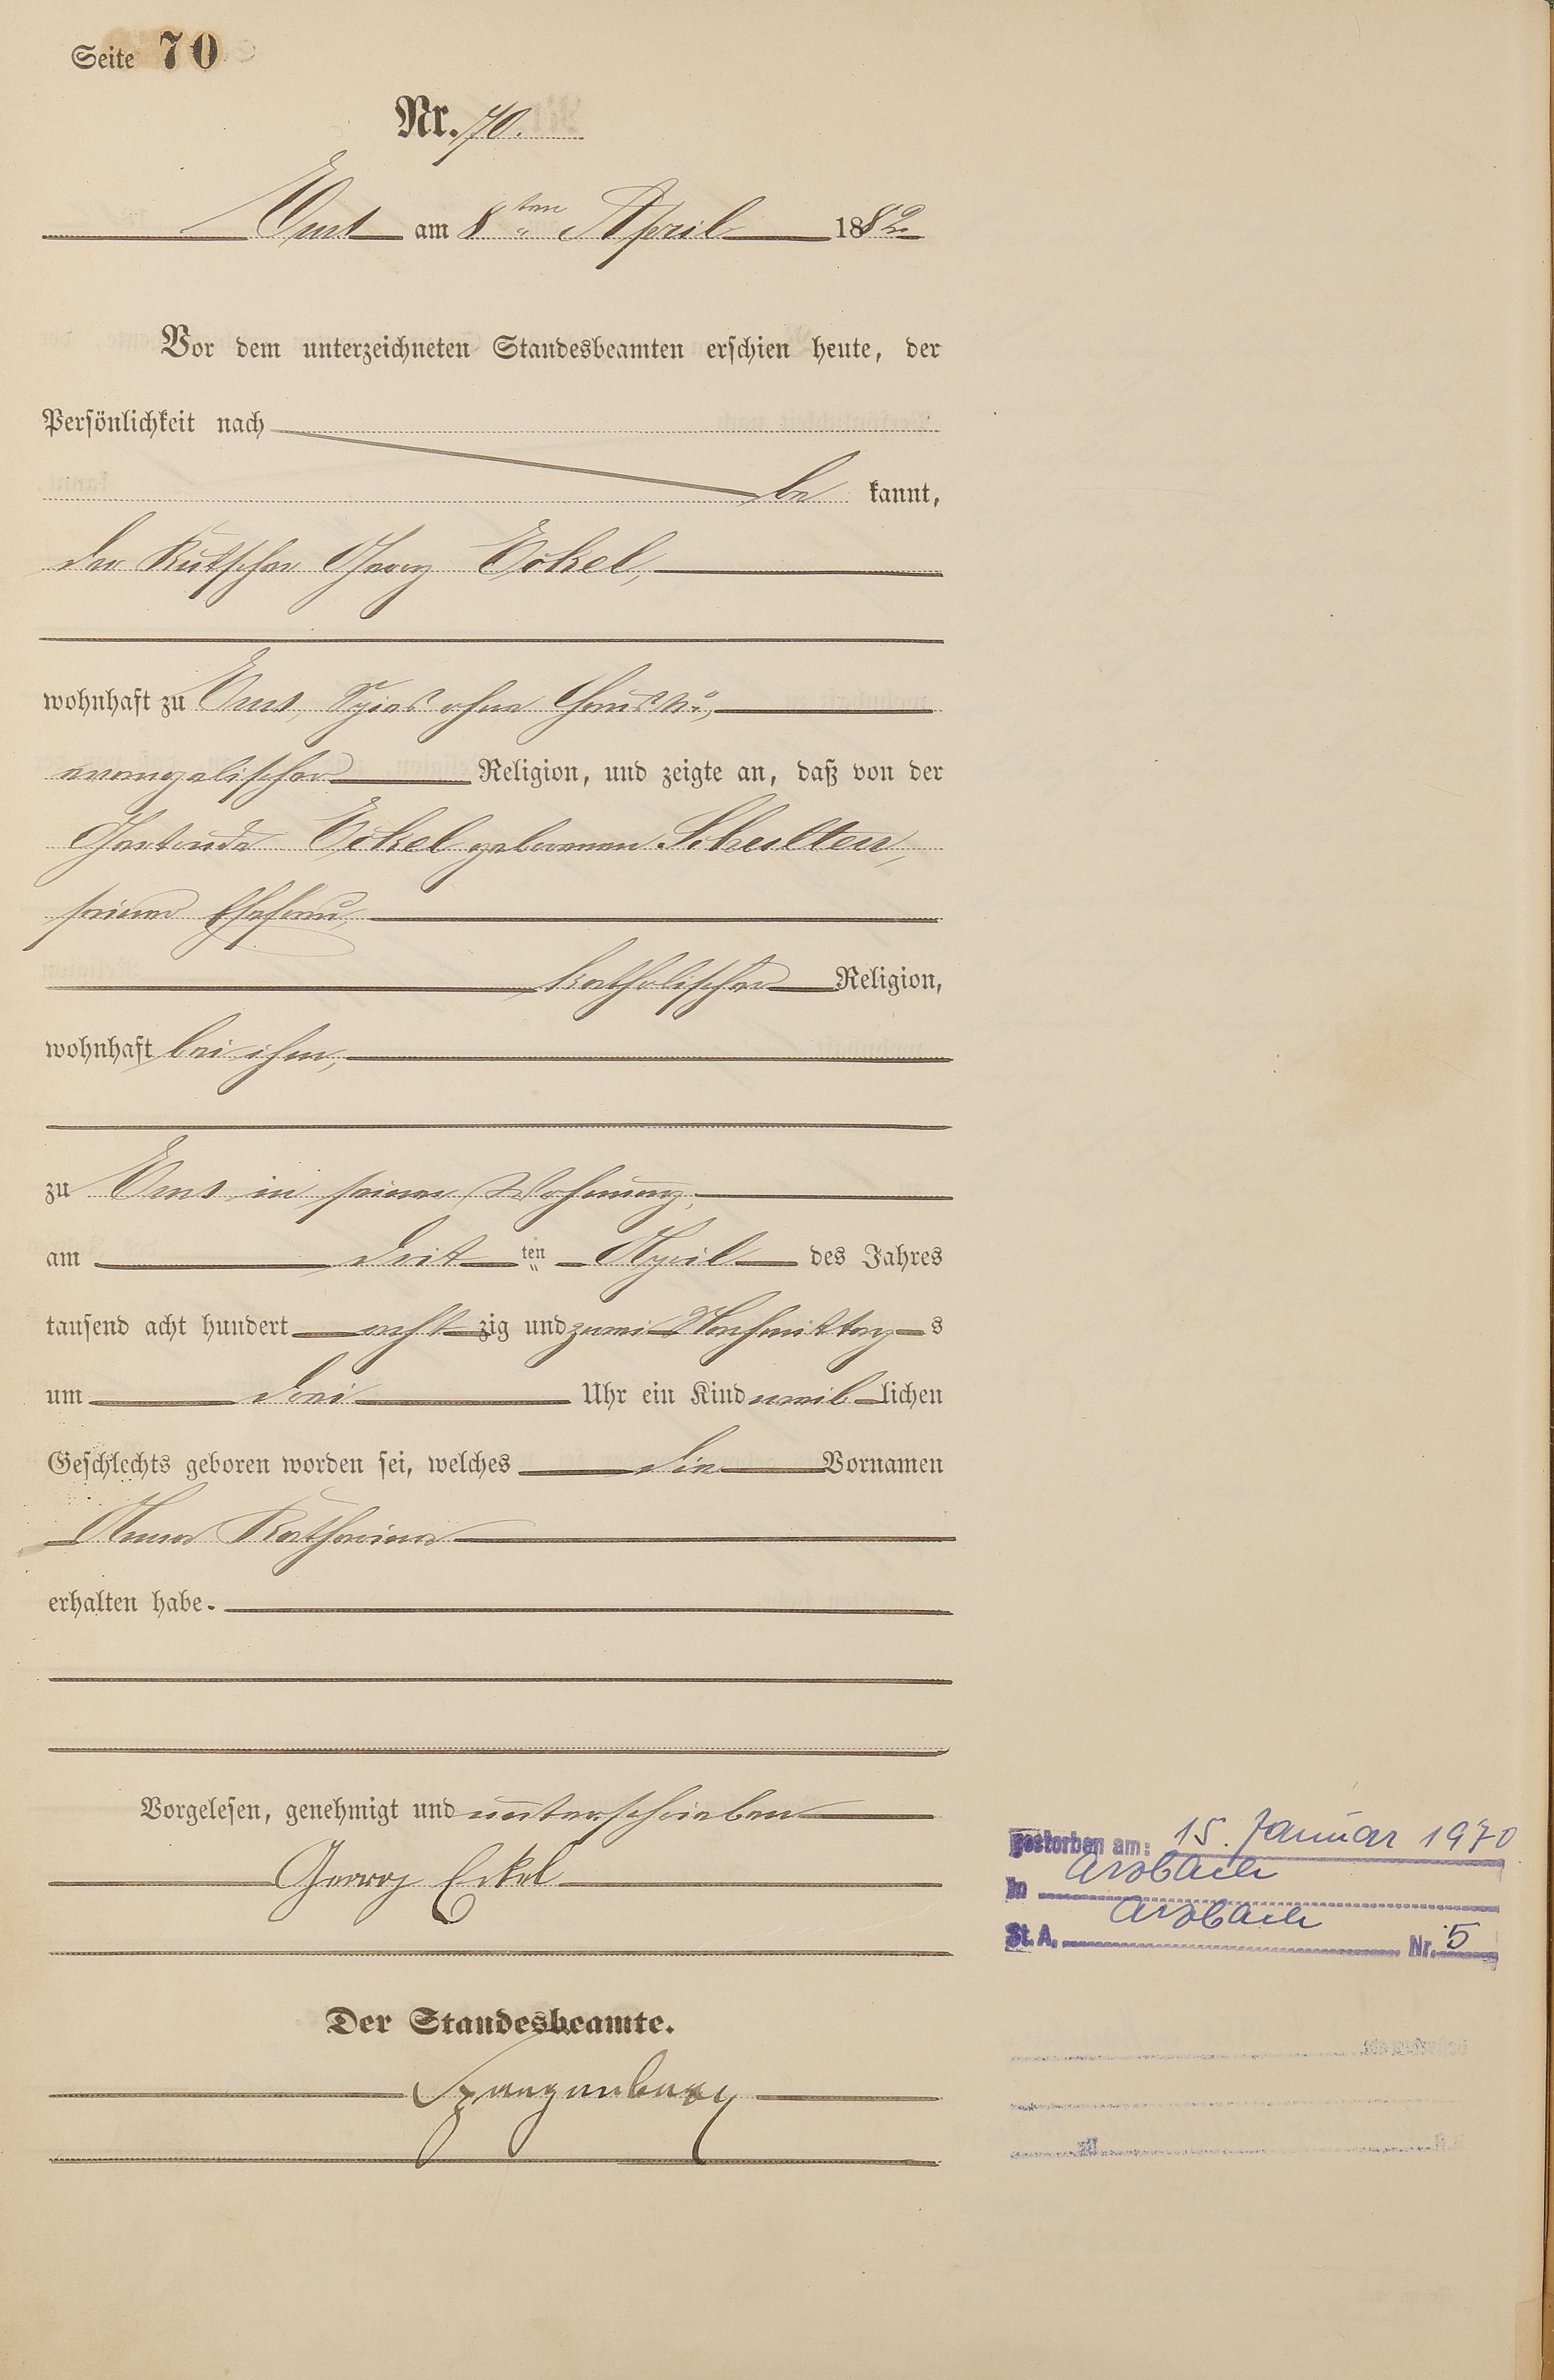 Seite 70
Nr. 70.
Ems am 8ten April 1882.
Vor dem unterzeichneten Standesbeamten erschien heute, der
Persönlichkeit nach
be kannt,
der Kutscher Georg Eckel,
wohnhaft zu Ems, Spies ohne Haus No,
evangelischer Religion, und zeigte an, daß von der
Gertrude Eckel geborenen Schulten,
seiner Ehefrau,
katholischer Religion,
wohnhaft bei ihm,
zu Ems in seiner Wohnung,
am dritten April des Jahres
tausend acht hundert achtzig und zwei Nachmittags
um drei Uhr ein Kind weiblichen
Geschlechts geboren worden sei, welches die Vornamen
Anna Katharina
erhalten habe.
Vorgelesen, genehmigt und unterschrieben
Georg Eckel
Der Standesbeamte.
Spangenberg
gestorben am: 15. Januar 1970
In Arzbach
St. A. Arzbach Nr. 5